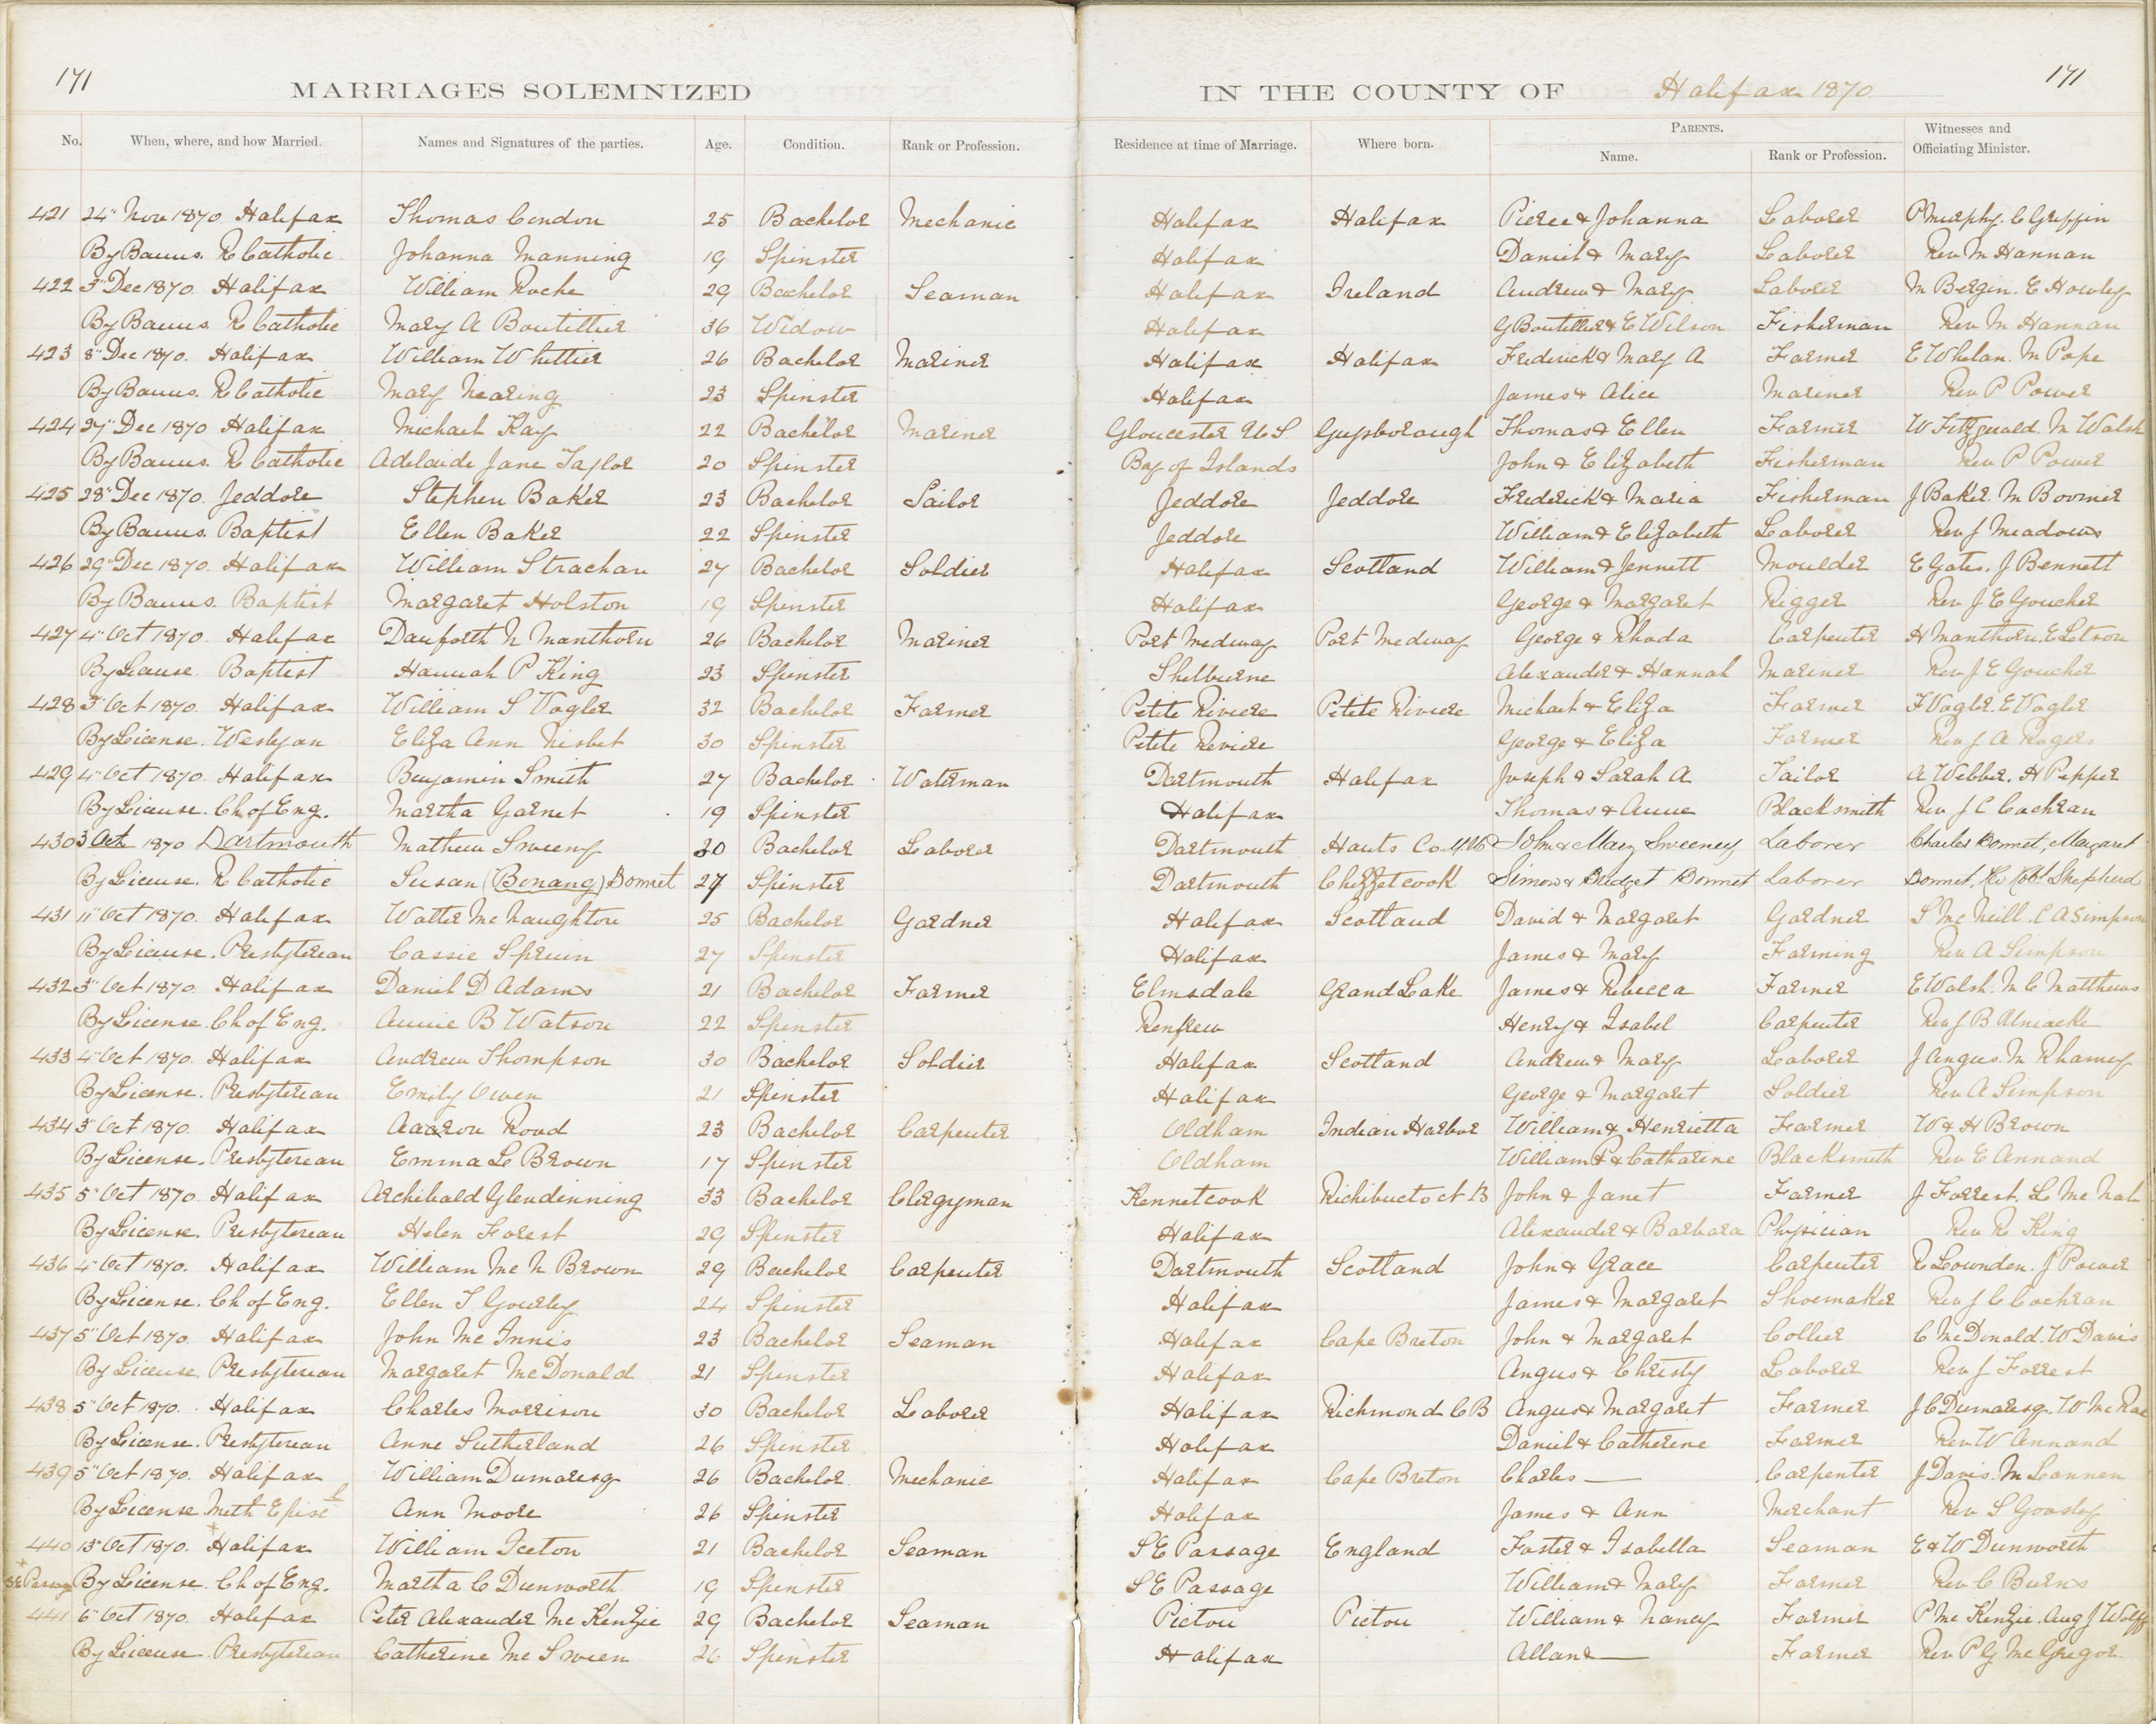 171
MARRIAGES SOLEMNIZED IN THE COUNTY OF Halifax 1870
171
No. When, where, and how Married. Names and Signatures of the parties. Age. Condition. Rank or Profession. Residence at time of Marriage. Where born. PARENTS. Name. Rank or Profession. Witnesses and Officiating Minister.
421 24" Nov 1870 Halifax Thomas Condon 25 Bachelor Mechanic Halifax Halifax Pierce & Johanna Laborer P Murphy. C Griffin
By Banns. R Catholic Johanna Manning 19 Spinster Halifax Daniel & Mary Laborer Rev M Hannan
422 3" Dec 1870 Halifax William Roche 29 Bachelor Seaman Halifax Ireland Andrew & Mary Laborer M Bergin. E Howley
By Banns. R Catholic Mary A Boutillier 36 Widow Halifax G Boutillier & E Wilson Fisherman Rev M Hannan
423 8" Dec 1870. Halifax William Whittier 26 Bachelor Mariner Halifax Halifax Frederick & Mary A Farmer E Whelan. M Pope
By Banns. R Catholic Mary Nearing 23 Spinster Halifax James & Alice Mariner Rev P Power
424 27" Dec 1870 Halifax Michael Kay 22 Bachelor Mariner Gloucester U.S. Guysborough Thomas & Ellen Farmer W Fitzgerald. M Walsh
By Banns. R Catholic Adelaide Jane Taylor 20 Spinster Bay of Islands John & Elizabeth Fisherman Rev P Power
425 28" Dec 1870. Jeddore Stephen Baker 23 Bachelor Sailor Jeddore Jeddore Frederick & Maria Fisherman J Baker. M
By Banns. Baptist Ellen Baker 22 Spinster Jeddore William & Elizabeth Laborer Rev J Meadows
426 29" Dec 1870. Halifax William Strachan 27 Bachelor Soldier Halifax Scotland William & Jennett Moulder E Gates. J Bennett
By Banns. Baptist Margaret Holston 19 Spinster Halifax George & Margaret Rigger Rev J E Goucher
427 4" Oct 1870. Halifax Danforth N Manthorn 26 Bachelor Mariner Port Medway Port Medway George & Rhoda Carpenter H Manthorn. E Letson
By License. Baptist Hannah P King 23 Spinster Shelburne Alexander & Hannah Mariner Rev J E Goucher
428 3" Oct 1870. Halifax William S Vogler 32 Bachelor Farmer Petite Riviere Petite Riviere Michael & Eliza Farmer F Vogler. E Vogler
By License. Weslyan Eliza Ann Nisbet 30 Spinster Petite Reviere George & Eliza Farmer Rev J A Rogers
429 4" Oct 1870. Halifax Benjamin Smith 27 Bachelor Waterman Dartmouth Halifax Joseph & Sarah A Tailor A Webber. H Pepper
By License. Ch of Eng. Martha Garnet 19 Spinster Halifax Thomas & Anne Blacksmith Rev J C Cochran
430 3 Oct 1870 Dartmouth Mathew Sweeny 30 Bachelor Laborer Dartmouth Hants Co. John & Mary Sweeney Laborer Charles Bonnet, Margaret
By License. R Catholic Susan (Bonang) Bonnet 27 Spinster Dartmouth Chezzetcook Simon & Bridget Bonnet Laborer Bonnet, Shepherd
431 11" Oct 1870. Halifax Walter Mc Naughton 25 Bachelor Gardner Halifax Scotland David & Margaret Gardner S Mc Neill. C A Simpson
By License. Presbyterean Cassie Spruin 27 Spinster Halifax James & Mary Farming Rev A Simpson
432 3" Oct 1870. Halifax Daniel D Adams 21 Bachelor Farmer Elmsdale Grand Lake James & Rebecca Farmer E Walsh. M C Matthews
By License. Ch of Eng. Annie B Watson 22 Spinster Renfrew Henry & Isabel Carpenter Rev J B Uniacke
433 4" Oct 1870. Halifax Andrew Thompson 30 Bachelor Soldier Halifax Scotland Andrew & Mary Laborer J Angus. M Rhamey
By License. Presbyterean Emily Owen 21 Spinster Halifax George & Margaret Soldier Rev A Simpson
434 3" Oct 1870 Halifax Aaaron Roud 23 Bachelor Carpenter Oldham Indian Harbor William & Henrietta Farmer W & H Brown
By License. Presbyterean Emma L Brown 17 Spinster Oldham William & Catharine Blacksmith Rev E Annand
435 5" Oct 1870. Halifax Archibald Glendinning 33 Bachelor Clergyman Kennetcook Richibucto N B John & Janet Farmer J Forrest. L Mc Nab
By License. Presbyterean Helen Forest 29 Spinster Halifax Alexander & Barbara Physician Rev R King
436 4" Oct 1870. Halifax William Mc N Brown 29 Bachelor Carpenter Dartmouth Scotland John & Grace Carpenter R Lownden. J Power
By License. Ch of Eng. Ellen T Gourley 24 Spinster Halifax James & Margaret Shoemaker Rev J C Cochran
437 5" Oct 1870. Halifax John Mc Innis 23 Bachelor Seaman Halifax Cape Breton John & Margaret Collier C McDonald. W Davis
By License. Presbyterean Margaret McDonald 21 Spinster Halifax Angus & Christy Laborer Rev J Forrest
438 5" Oct 1870. Halifax Charles Morrison 30 Bachelor Laborer Halifax Richmond C B Angus & Margaret Farmer J C Dumaresq. W McRae
By License. Presbyterean Anne Sutherland 26 Spinster Halifax Daniel & Catherine Farmer Rev W Annand
439 5" Oct 1870. Halifax William Dumaresq 26 Bachelor Mechanic Halifax Cape Breton Charles — Carpenter J Davis. M Lannen
By License. Meth Episc'l Ann Moore 26 Spinster Halifax James & Ann Merchant Rev S Goosley
440 13" Oct 1870. Halifax William Iceton 21 Bachelor Seaman S E Passage England Foster & Isabella Seaman E & W Dunworth
SE Passage By License. Ch of Eng. Martha C Dunworth 19 Spinster S E Passage William & Mary Farmer Rev C Burns
441 6" Oct 1870. Halifax Peter Alexander Mc Kenzie 29 Bachelor Seaman Pictou Pictou William & Nancy Farmer P Mc Kenzie. Aug J Wolff
By License. Presbyterean Catherine Mc Sween 26 Spinster Halifax Allan & — Farmer Rev P G Mc Gregor.